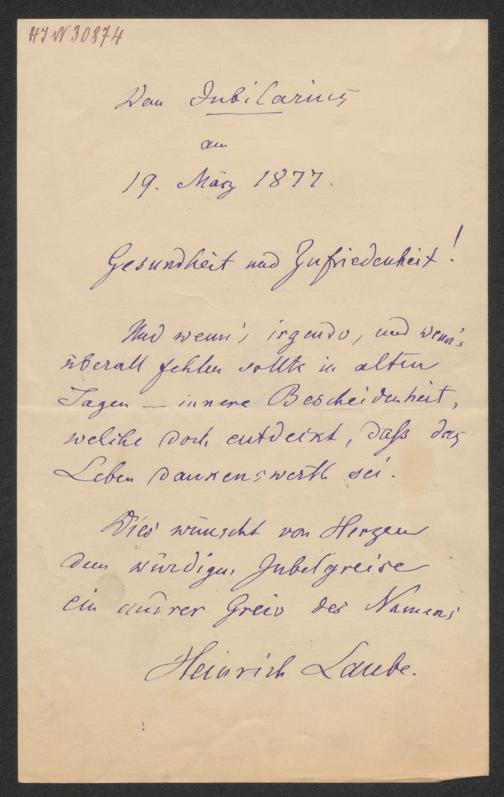 HIN 30874
Dem Jubilarius
am
19. März 1877.
Gesundheit und Zufriedenheit!
Und wenn's irgendwo, und wenn's
überall fehlen sollte in alten
Tagen — innere Bescheidenheit,
welche doch entdeckt, daß das
Leben dankenswerth sei.
Dies wünscht von Herzen
dem würdigen Jubelgreise
ein andrer Greis des Namens
Heinrich Laube.